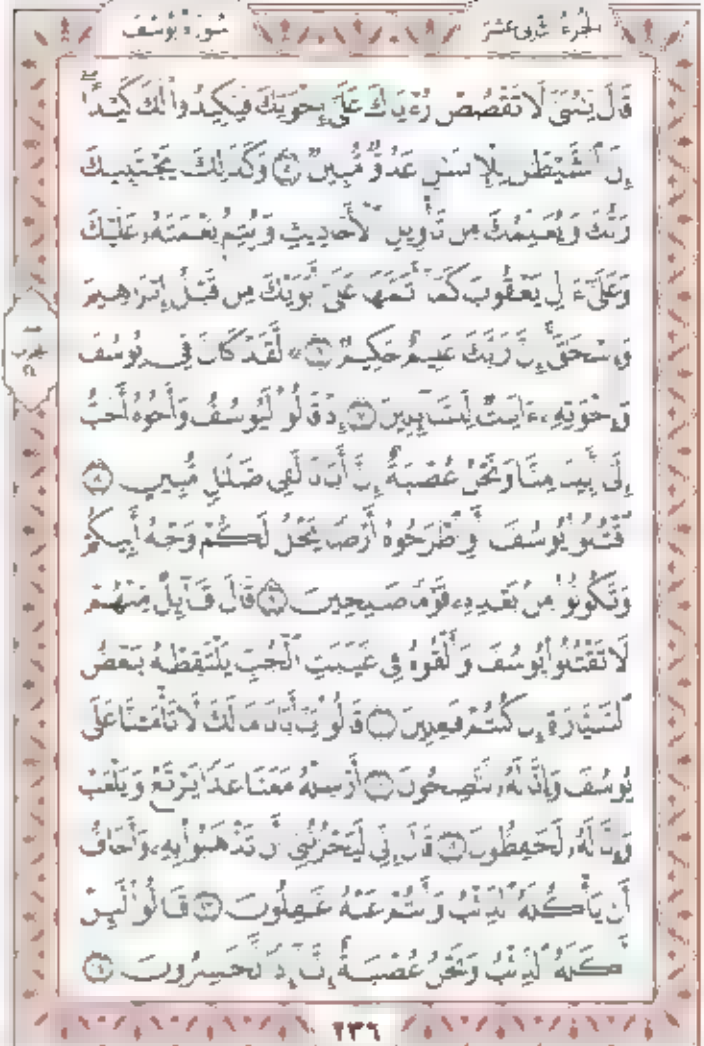 سورة يوسف الجزء الثاني عشر
قَالَ يَٰبُنَيَّ لَا تَقْصُصْ رُءْيَاكَ عَلَىٰٓ إِخْوَتِكَ فَيَكِيدُوا۟ لَكَ كَيْدًا
إِنَّ ٱلشَّيْطَٰنَ لِلْإِنسَٰنِ عَدُوٌّ مُّبِينٌ ٥ وَكَذَٰلِكَ يَجْتَبِيكَ
رَبُّكَ وَيُعَلِّمُكَ مِن تَأْوِيلِ ٱلْأَحَادِيثِ وَيُتِمُّ نِعْمَتَهُۥ عَلَيْكَ
وَعَلَىٰٓ ءَالِ يَعْقُوبَ كَمَآ أَتَمَّهَا عَلَىٰٓ أَبَوَيْكَ مِن قَبْلُ إِبْرَٰهِيمَ
وَإِسْحَٰقَ إِنَّ رَبَّكَ عَلِيمٌ حَكِيمٌ ٦ لَّقَدْ كَانَ فِى يُوسُفَ
وَإِخْوَتِهِۦٓ ءَايَٰتٌ لِّلسَّآئِلِينَ ٧ إِذْ قَالُوا۟ لَيُوسُفُ وَأَخُوهُ أَحَبُّ
إِلَىٰٓ أَبِينَا مِنَّا وَنَحْنُ عُصْبَةٌ إِنَّ أَبَانَا لَفِى ضَلَٰلٍ مُّبِينٍ ٨
ٱقْتُلُوا۟ يُوسُفَ أَوِ ٱطْرَحُوهُ أَرْضًا يَخْلُ لَكُمْ وَجْهُ أَبِيكُمْ
وَتَكُونُوا۟ مِنۢ بَعْدِهِۦ قَوْمًا صَٰلِحِينَ ٩ قَالَ قَآئِلٌ مِّنْهُمْ
لَا تَقْتُلُوا۟ يُوسُفَ وَأَلْقُوهُ فِى غَيَٰبَتِ ٱلْجُبِّ يَلْتَقِطْهُ بَعْضُ
ٱلسَّيَّارَةِ إِن كُنتُمْ فَٰعِلِينَ ١٠ قَالُوا۟ يَٰٓأَبَانَا مَا لَكَ لَا تَأْمَ۫نَّا عَلَىٰ
يُوسُفَ وَإِنَّا لَهُۥ لَنَٰصِحُونَ ١١ أَرْسِلْهُ مَعَنَا غَدًا يَرْتَعْ وَيَلْعَبْ
وَإِنَّا لَهُۥ لَحَٰفِظُونَ ١٢ قَالَ إِنِّى لَيَحْزُنُنِىٓ أَن تَذْهَبُوا۟ بِهِۦ وَأَخَافُ
أَن يَأْكُلَهُ ٱلذِّئْبُ وَأَنتُمْ عَنْهُ غَٰفِلُونَ ١٣ قَالُوا۟ لَئِنْ
أَكَلَهُ ٱلذِّئْبُ وَنَحْنُ عُصْبَةٌ إِنَّآ إِذًا لَّخَٰسِرُونَ ١٤
٢٣٦